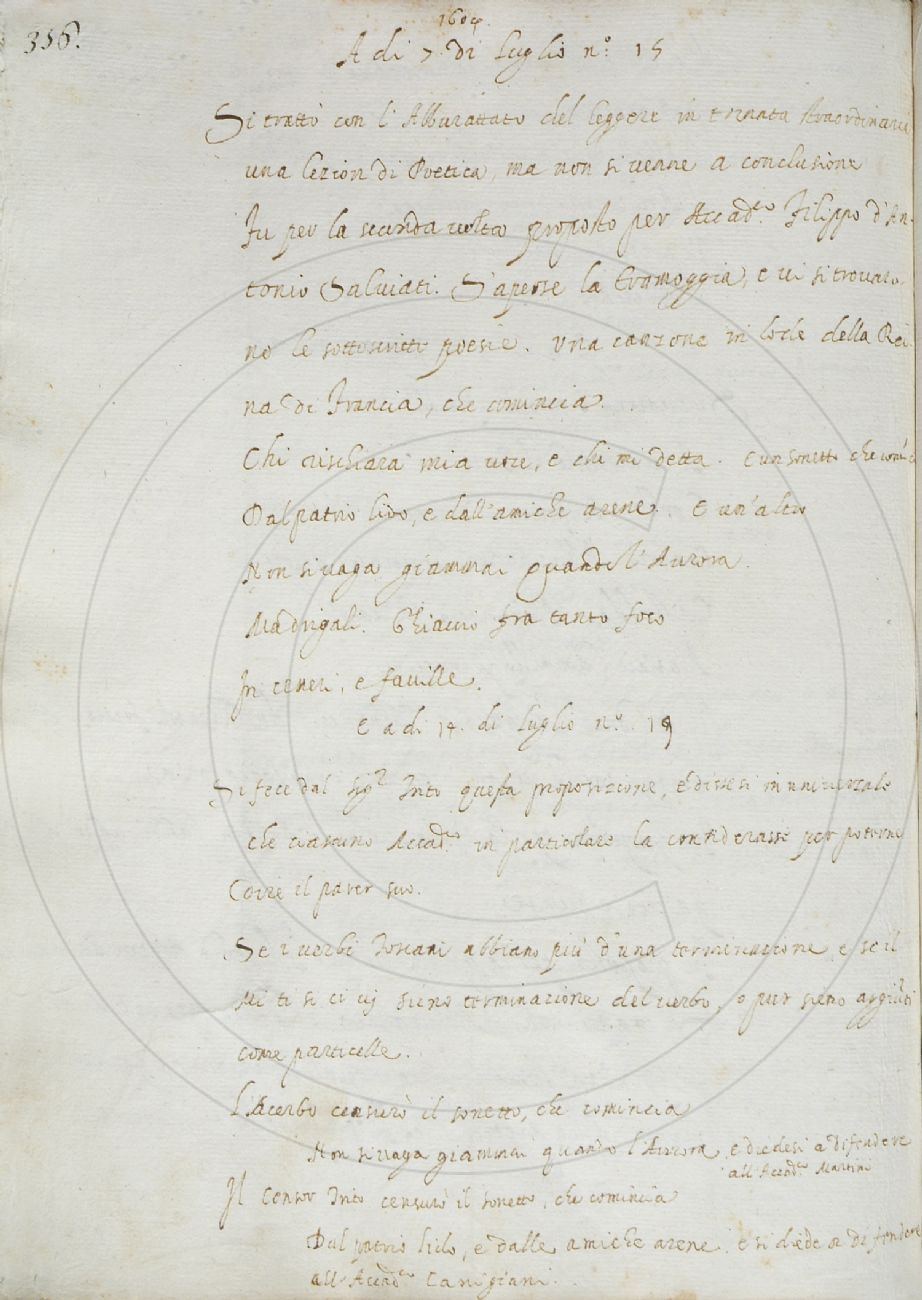 356.
1604.
A di 7 di Luglio n.º 15
Si trattò con l'Abburattato del leggere in tornata straordinaria
una lezion di Poetica, ma non si venne a conclusione
Fu per la seconda volta proposto per Accad.co Filippo d'An
tonio Salviati. S'aperse la tramoggia, e vi si trovaro-
no le sottoscritte poesie. Una canzone in lode della Rei
na di Francia, che comincia.
Chi rischiara mia voce, e chi mi detta. E un sonetto che
Dal patrio lido, e dall'amiche arene. E un'altro
Non si vaga giammai quando l'Aurora.
Madrigali. Ghiaccio fra tanto foco
In ceneri, e faville.
E a di 14. di Luglio n.º 19
Si fece dal Sig.r Into questa proposizione, e dissesi in universale
che ciascuno Accad.co in particolare la considerassi per poterne
dire il parer suo.
Se i verbi Toscani abbiano più d'una terminazione e se il
Mi ti si ci vi sieno terminazione del verbo, o pur sieno aggiunti
come particelle.
L'Acerbo censurò il sonetto, che comincia
Non si vaga giammai quando l'Aurora, e diedesi a difendere
all'Accad.co Martini
Il Censor Into censurò il sonetto, che comincia
Dal patrio lido, e dalle amiche arene. e si diede a difendere
all'Accad.co Canigiani.